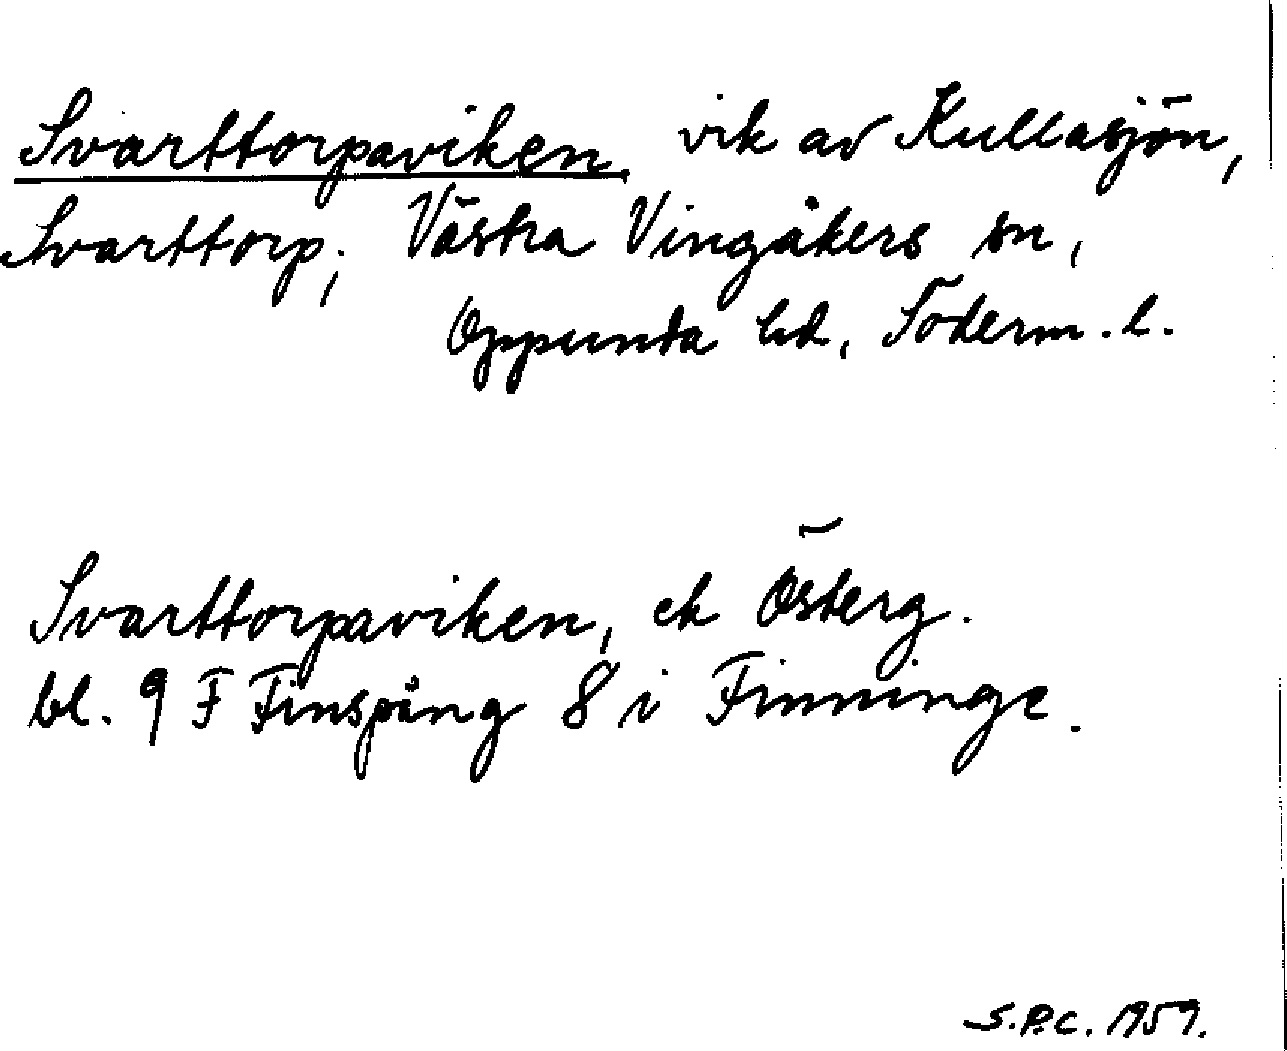 Svarttorpaviken, vik av Kullasjön,
Svarttorp; Västra Vingåkers sn,
Oppunda hd, Söderm. l.
Svarttorpaviken, ek Österg.
bl. 9 F Finspång 8 i Finninge.
S.P.C. 1959.